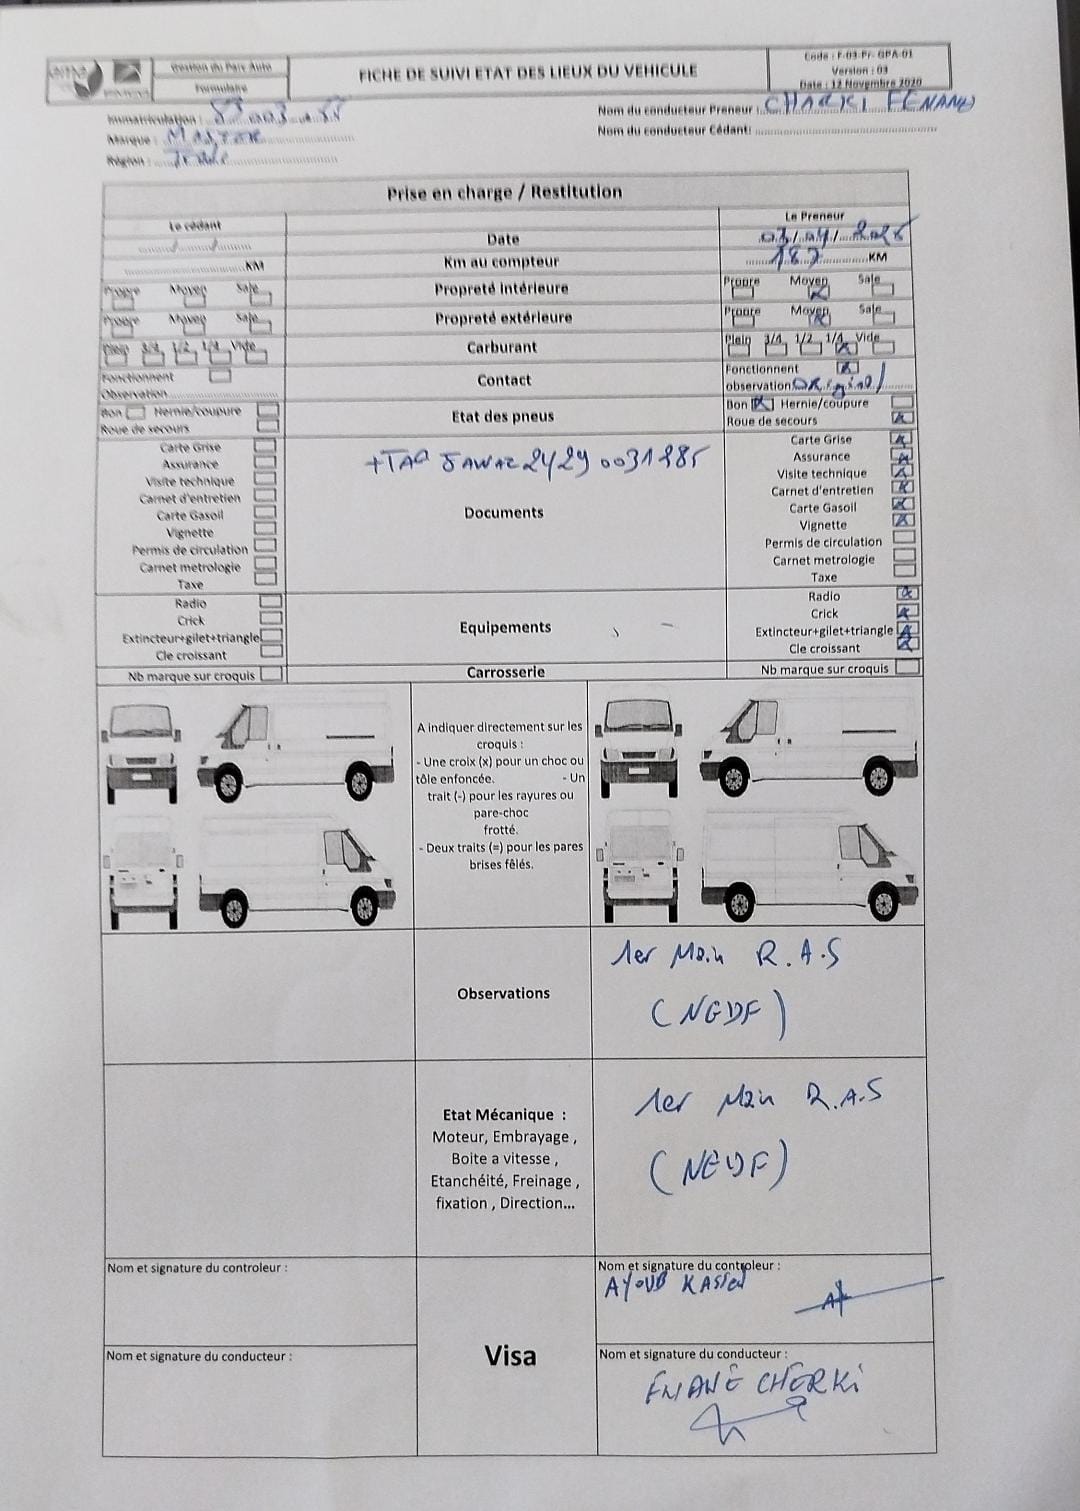 Gestion du Parc Auto
Formulaire
FICHE DE SUIVI ETAT DES LIEUX DU VEHICULE
Code : F-03-Pr-GPA-01
Version : 03
Date : 12 Novembre 2020
Immatriculation :
Marque : MASTER
Région :
Nom du conducteur Preneur : CHARKI
Nom du conducteur Cédant:
Prise en charge / Restitution
Le cédant
Le Preneur
Date
03/04/2025
KM
Km au compteur
187 KM
Propre Moyen Sale
Propreté intérieure
Propre Moyen Sale
Propre Moyen Sale
Propreté extérieure
Propre Moyen Sale
Plein 3/4 1/2 1/4 Vide
Carburant
Plein 3/4 1/2 1/4 Vide
Fonctionnent
Observation
Contact
Fonctionnent
observation original
Bon Hernie/coupure
Roue de secours
Etat des pneus
Bon Hernie/coupure
Roue de secours
Carte Grise
Assurance
Visite technique
Carnet d'entretien
Carte Gasoil
Vignette
Permis de circulation
Carnet metrologie
Taxe
+TAG JAWAZ 2429 0031285
Documents
Carte Grise
Assurance
Visite technique
Carnet d'entretien
Carte Gasoil
Vignette
Permis de circulation
Carnet metrologie
Taxe
Radio
Crick
Extincteur+gilet+triangle
Cle croissant
Equipements
Radio
Crick
Extincteur+gilet+triangle
Cle croissant
Nb marque sur croquis
Carrosserie
Nb marque sur croquis
A indiquer directement sur les
croquis :
- Une croix (x) pour un choc ou
tôle enfoncée. - Un
trait (-) pour les rayures ou
pare-choc
frotté.
- Deux traits (=) pour les pares
brises fêlés.
Observations
1er Main R.A.S
(NEDF)
Etat Mécanique :
Moteur, Embrayage ,
Boite a vitesse ,
Etanchéité, Freinage ,
fixation , Direction...
1er Main R.A.S
(NEDF)
Nom et signature du controleur :
Nom et signature du controleur :
AYOUB
Visa
Nom et signature du conducteur :
Nom et signature du conducteur :
CHERKI